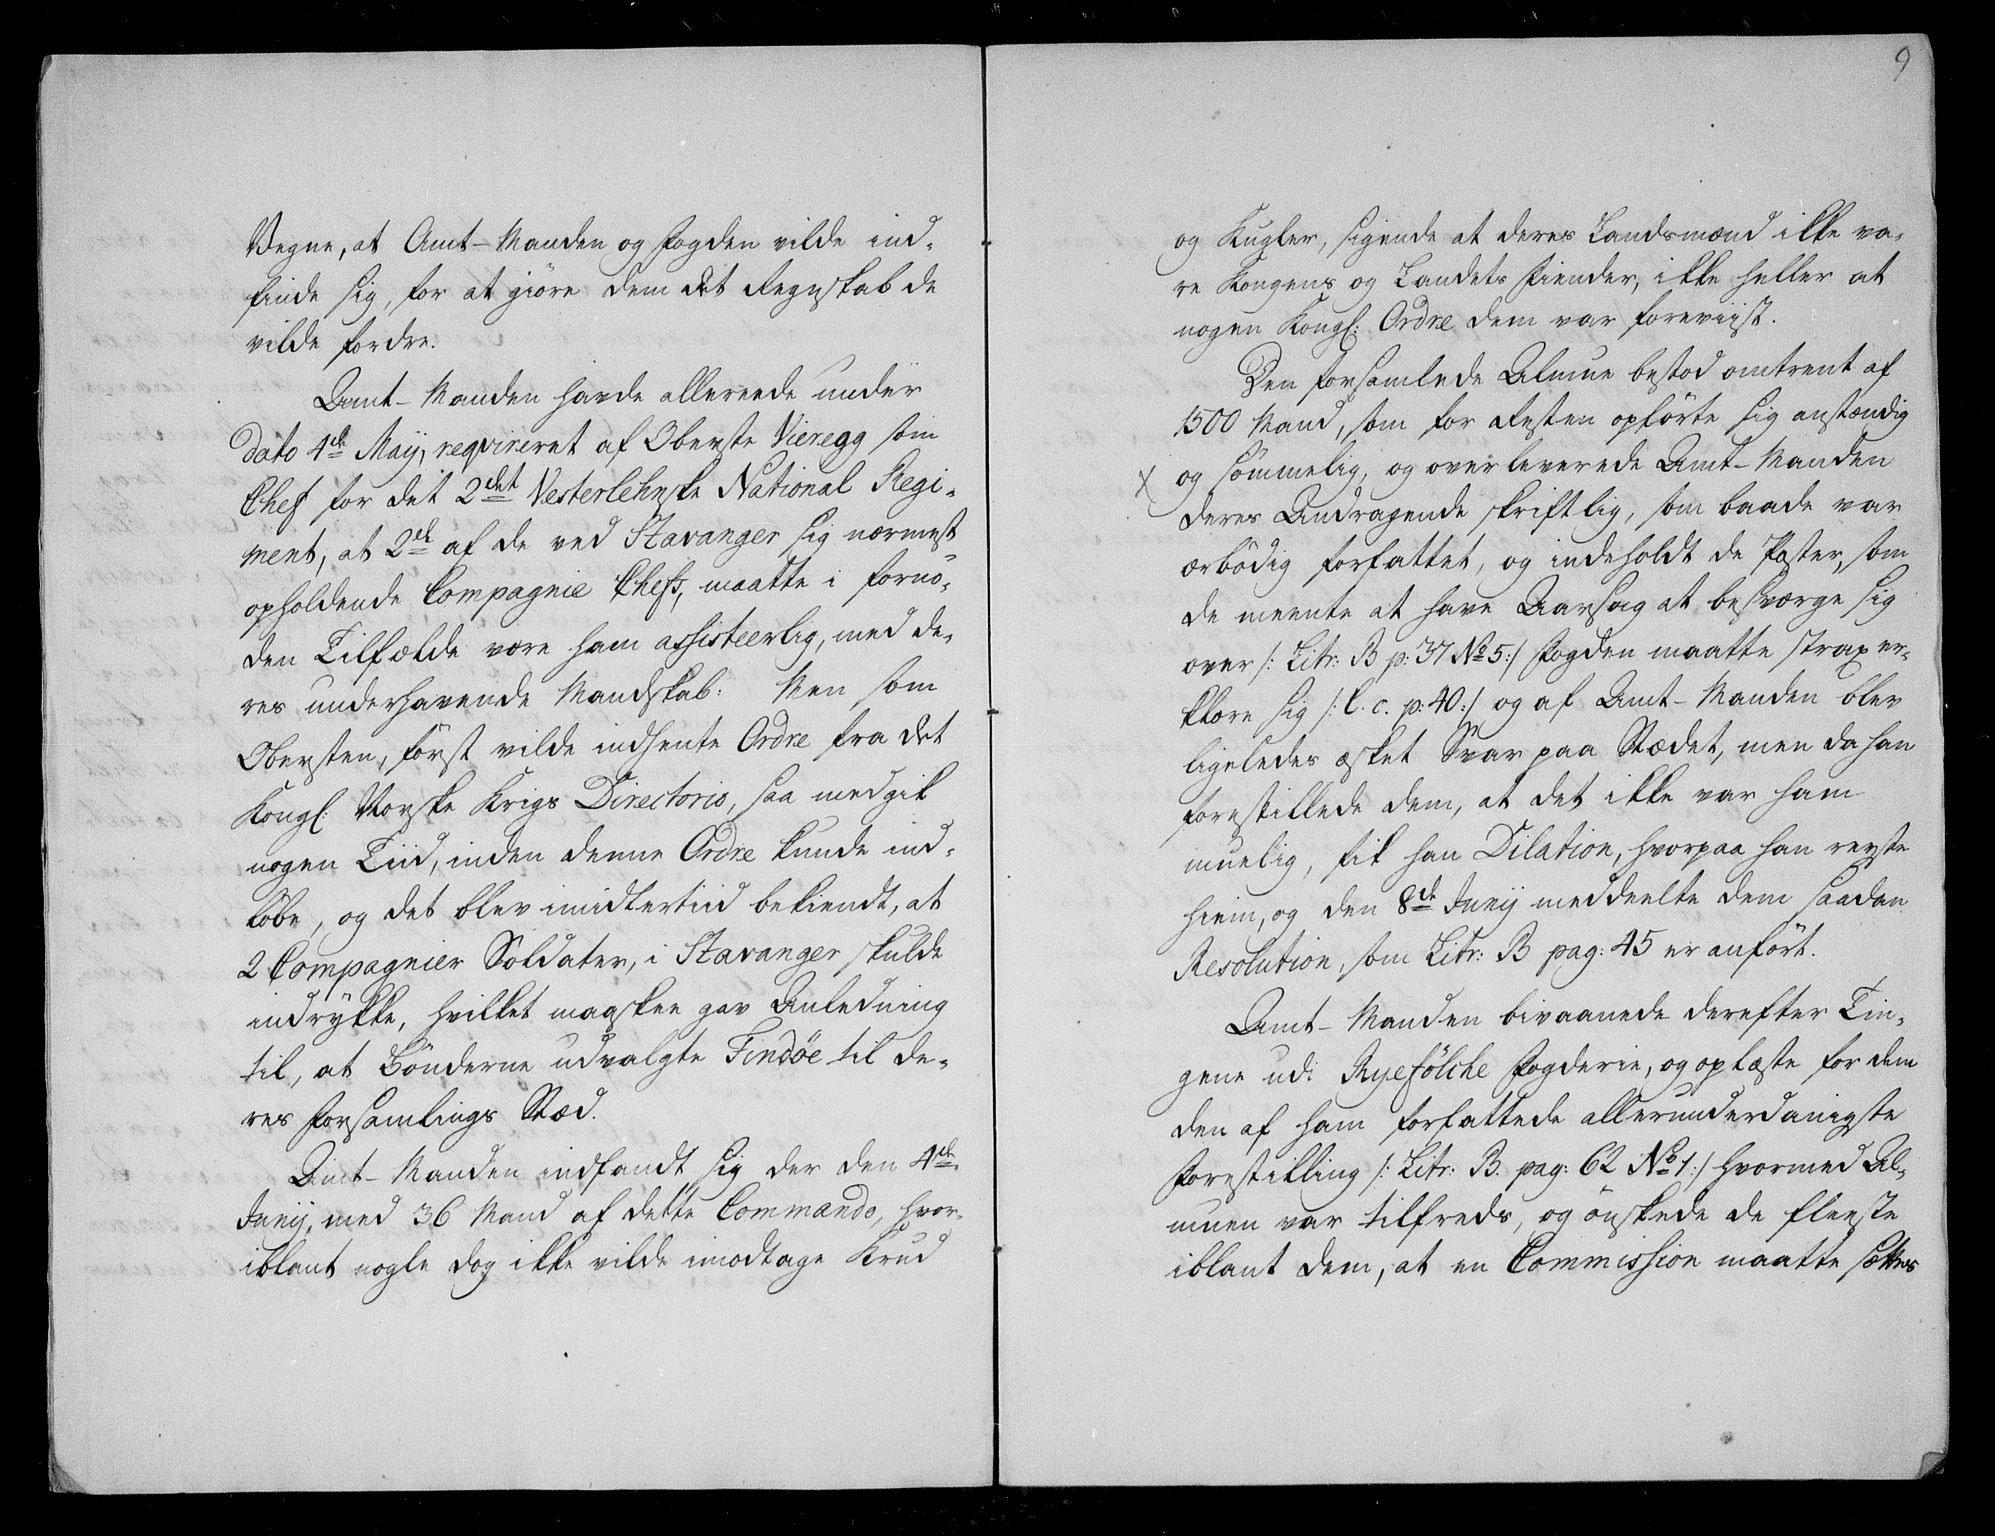 Vegne, at Amt-Manden og Fogden vilde ind-
finde sig, for at giöre dem det Regnskab de
vilde fordre.
Amt-Manden havde allereede under
dato 4de Maij, reqvireret af Oberste Vieregg som
Chef for det 2det Vesterlehnske National Regi-
ment, at 2de af de ved Stavanger sig nærmest
opholdende Compagnie Chefs, maatte i fornö-
den Tilfælde være ham assisteerlig, med de-
res underhavende Mandskab: Men som
Obersten, först vilde indhente Ordre fra det
Kongl: Norske Krigs Directorio, saa medgik
nogen Tiid, inden denne Ordre kunde ind-
löbe, og det blev imidlertiid bekiendt, at
2 Compagnier Soldater, i Stavanger skulde
indrykke, hvilket maaskee gav Anledning
til, at Bönderne udvalgte Findöe til de-
res Forsamlings Stæd.
Amt-Manden indfandt sig der den 4de
Junij, med 36 Mand af dette Commando, hvor-
iblant nogle dog ikke vilde imodtage Krud
9
og Kugler, sigende at deres Landsmænd ikke va-
re Kongens og Landets Fiender, ikke heller at
nogen Kongl: Ordre dem var foreviist.
Den forsamlede Almue bestod omtrent af
1500 Mand, som for Resten opförte sig anstændig
x og sömmelig, og overleverede Amt-Manden
deres Andragende skriftlig, som baade var
ærbödig forfattet, og indeholdt de Poster, som
de meente at have Aarsag at besværge sig
over /: Litr: B p: 37 No 5:/ Fogden maatte strax er-
klære sig /: l. c. p: 40:/ og af Amt-Manden blev
ligeledes æsket Svar paa Stædet, men da han
forestillede dem, at det ikke var ham
muelig, fik han Dilation, hvorpaa han reyste
hiem, og den 8de Junij meddeelte dem saadan
Resolution, som Litr: B pag: 45 er anfört.
Amt-Manden bivaanede derefter Tin-
gene udi Ryefölche Fogderie, og oplæste for dem
den af ham forfattede allerunderdanigste
Forestilling /: Litr: B. pag: 62 No 1:/ hvormed Al-
muen var tilfreds, og önskede de fleeste
iblant dem, at en Commission maatte sættes